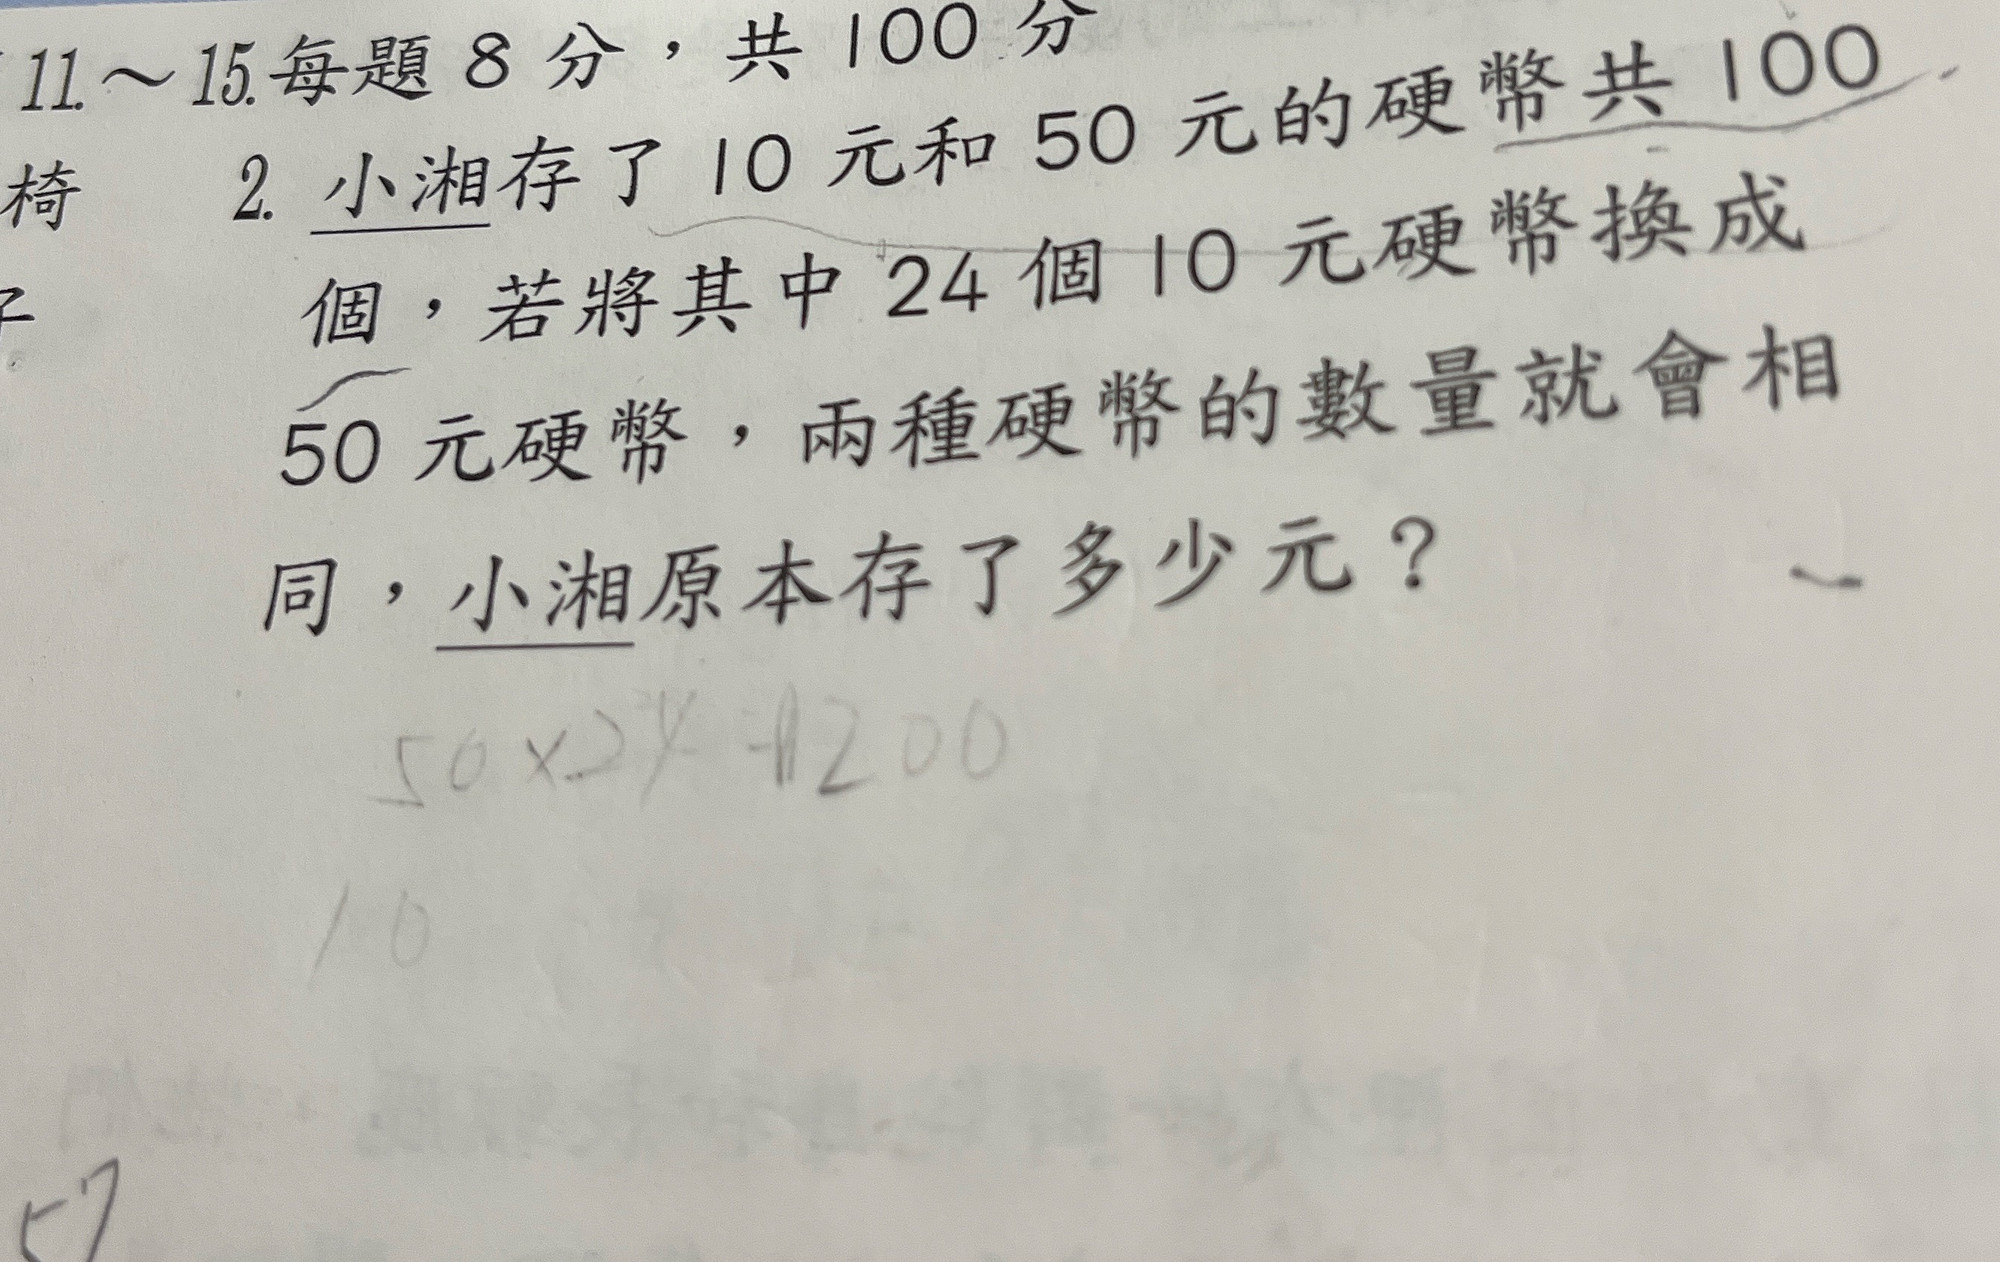 11.～15.每題 8 分，共 100 分
椅
子
2. 小湘存了 10 元和 50 元的硬幣共 100
個，若將其中 24 個 10 元硬幣換成
50 元硬幣，兩種硬幣的數量就會相
同，小湘原本存了多少元？
50×24=1200
10
57